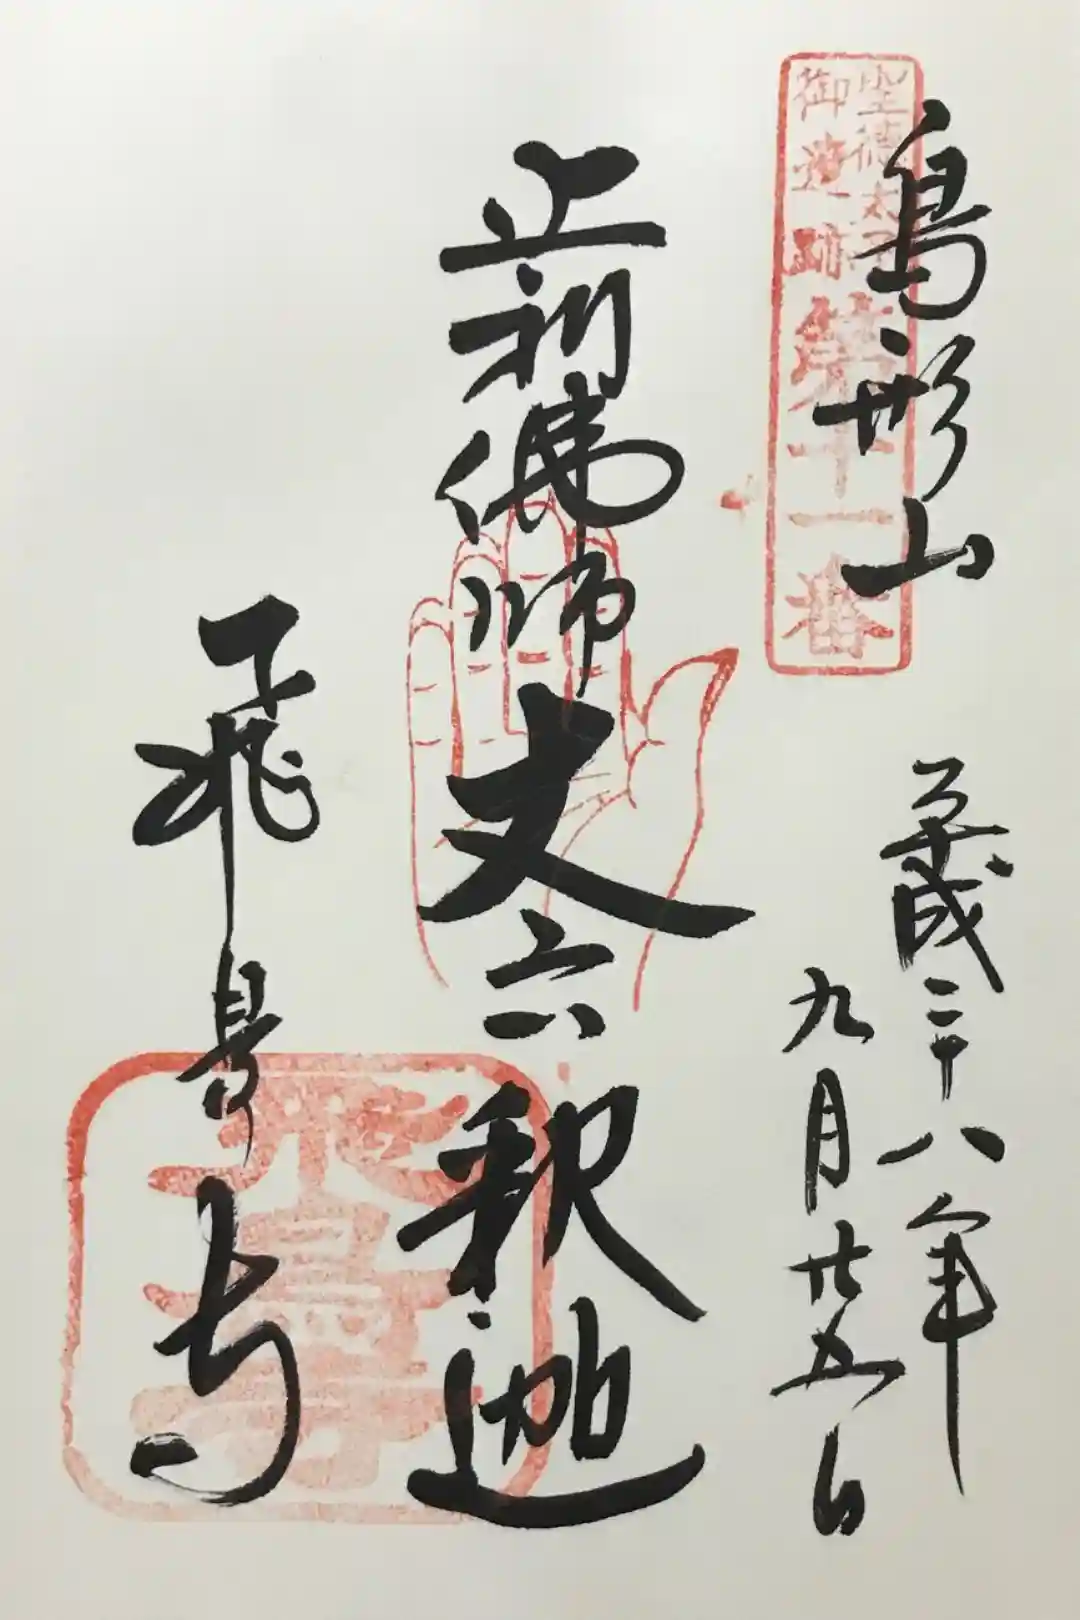 聖徳太子
御遺跡
第十一番
鳥形山
平成二十八年
九月廿五日
止利佛師丈六釈迦
飛鳥寺
飛鳥寺